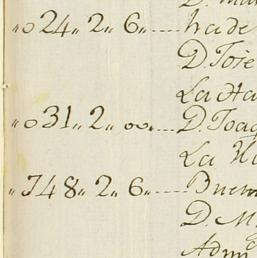 D. Ma
„ 024„ 2„ 6„.... ha de
D. Jose
La Ha
„ 031„ 2„ 00„.... D. Joaq
La Ha
„ 748„ 2„ 6„.... Buen
D. M
Adm